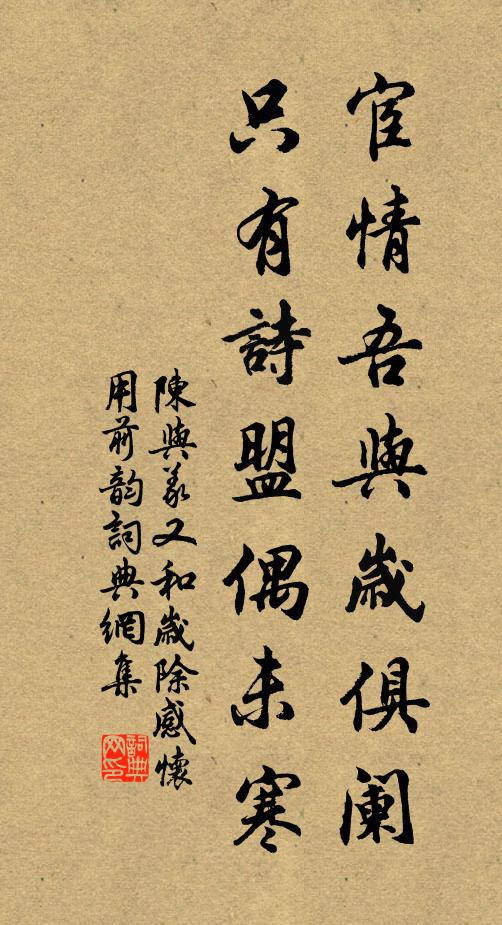 宦情吾與歲俱闌
只有詩盟偶未寒
陳與義又和歲除感懷
用前韵詞典網集
詞典网印